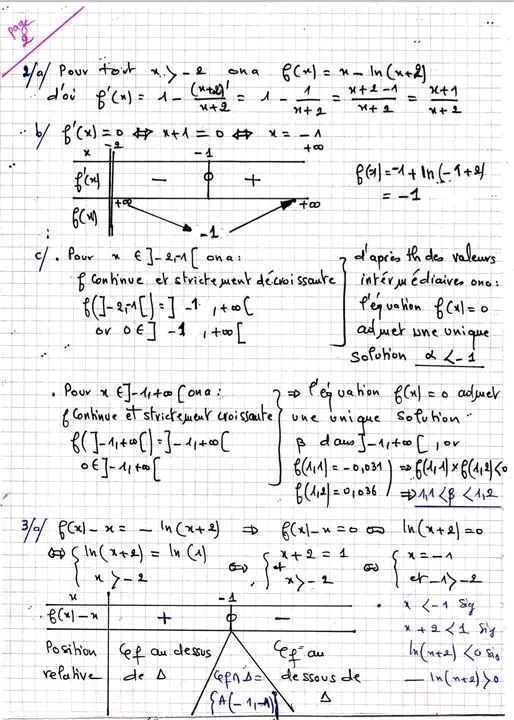 page 2
2/a) Pour tout x > -2 on a f(x) = x - ln(x+2)
d'où f'(x) = 1 - (x+2)'/(x+2) = 1 - 1/(x+2) = (x+2-1)/(x+2) = (x+1)/(x+2)
b/ f'(x)=0 ⇔ x+1 = 0 ⇔ x = -1
x -2 -1 +∞
f'(x) - 0 +
f(x) +∞ -1 +∞
f(-1) = -1 + ln(-1+2)
= -1
c/ . Pour x ∈ ]-2,-1[ on a :
f continue et strictement décroissante
f(]-2,-1[) = ]-1, +∞[
or 0 ∈ ]-1, +∞[
d'après th des valeurs
intérmédiaires on a :
l'équation f(x) = 0
admet une unique
solution α < -1
. Pour x ∈ ]-1,+∞[ on a :
f continue et strictement croissante
f(]-1,+∞[) = ]-1,+∞[
0 ∈ ]-1,+∞[
⇒ l'équation f(x) = 0 admet
une unique solution
β dans ]-1,+∞[, or
f(1,1) = -0,031
f(1,2) = 0,036
⇒ f(1,1) × f(1,2) < 0
⇒ 1,1 < β < 1,2
3/a) f(x) - x = - ln(x+2) ⇒ f(x) - x = 0 ⇔ ln(x+2) = 0
⇔ { ln(x+2) = ln(1) x > -2 ⇔ { x+2 = 1 et x > -2 ⇔ { x = -1 et -1 > -2
x -1
f(x) - x + 0 -
Position relative
Cf au dessus de Δ
Cf ∩ Δ = {A(-1,-1)}
Cf au dessous de Δ
. x < -1 sig
x + 2 < 1 sig
ln(x+2) < 0 sig
- ln(x+2) > 0